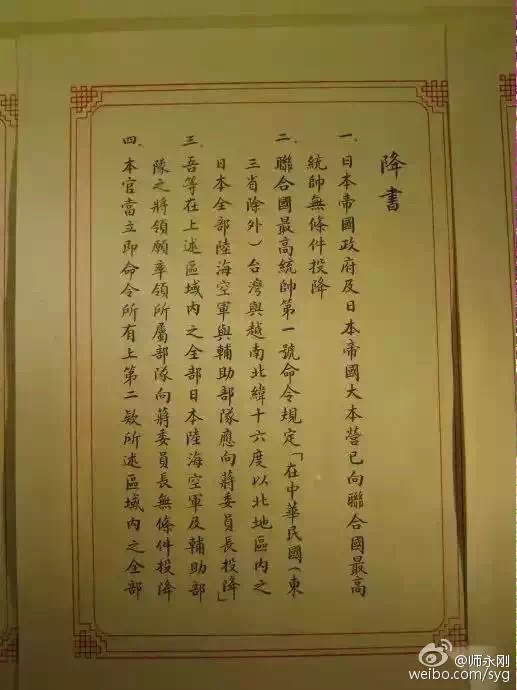 降書
一、日本帝國政府及日本帝國大本營已向聯合國最高
統帥無條件投降
二、聯合國最高統帥第一號命令規定「在中華民國(東
三省除外)台灣與越南北緯十六度以北地區內之
日本全部陸海空軍與輔助部隊應向蔣委員長投降」
三、吾等在上述區域內之全部日本陸海空軍及輔助部
隊之將領願率領所屬部隊向蔣委員長無條件投降
四、本官當立即命令所有上第二欵所述區域內之全部
@师永刚
weibo.com/syg